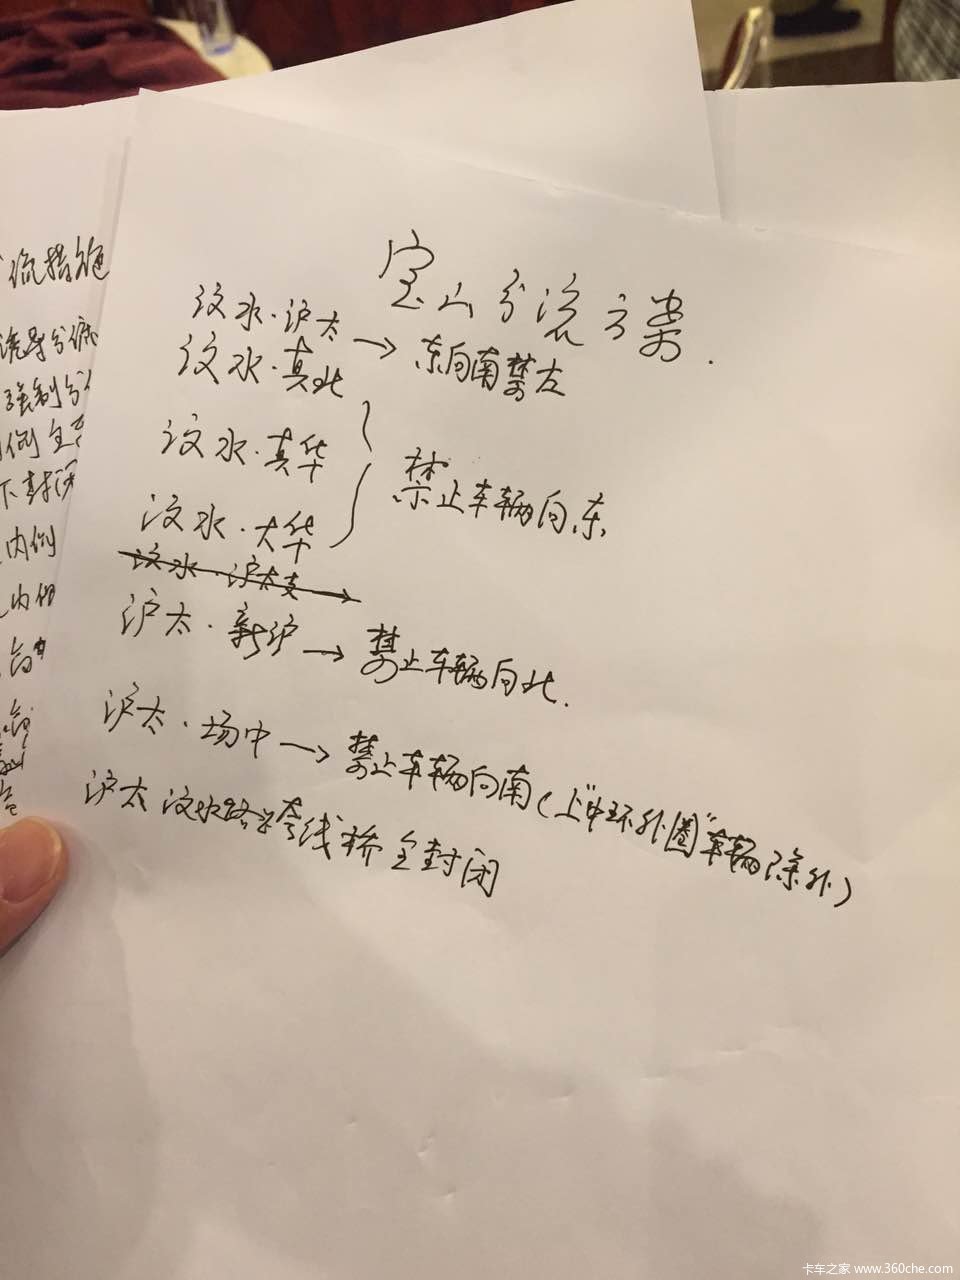 宝山分流方案.
汶水·沪太 → 东向南禁左
汶水·真北
汶水·真华
汶水·大华
禁止车辆向东
汶水·沪太支 →
沪太·新沪 → 禁止车辆向北.
沪太·场中 → 禁止车辆向南(上"中环外圈"车辆除外)
沪太汶水路跨线桥全封闭
流措施
诱导分流
强制分
侧全
下封闭
内侧
内侧
卡车之家 www.360che.com